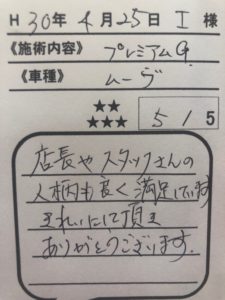 H 30年 4月 25日 I 様
《施術内容》 プレミアムG
《車種》 ムーヴ
★★
★★★
5 / 5
店長やスタッフさんの
人柄も良く満足しています
きれいにして頂き
ありがとうございます。